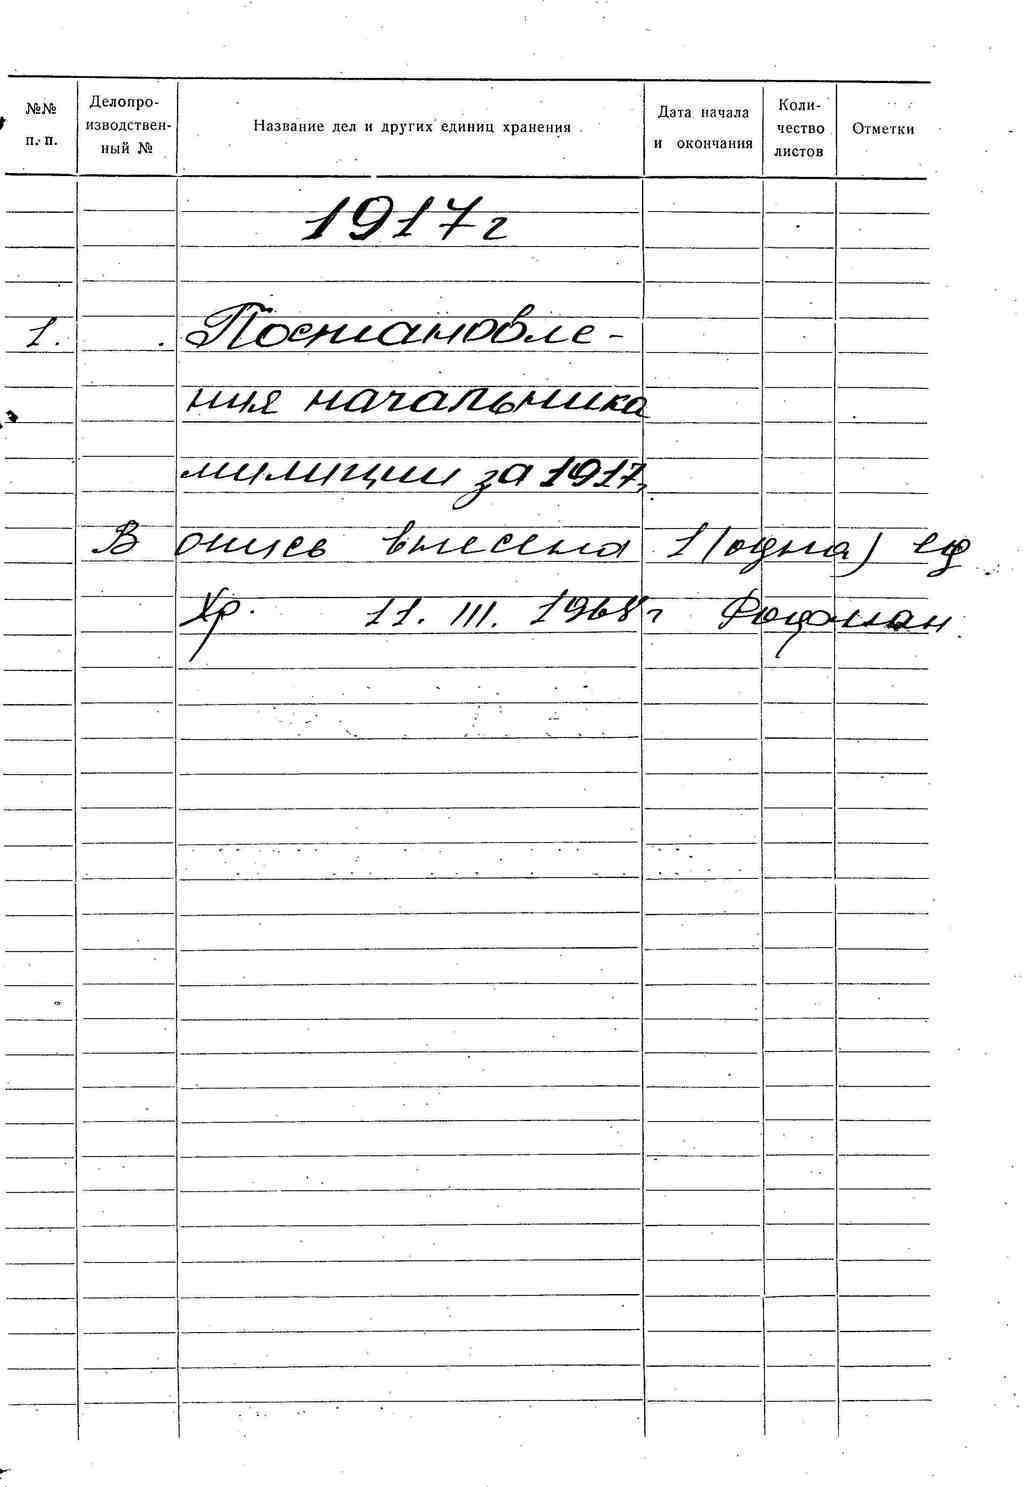 №№ п. п.
Делопро-
изводствен-
ный №
Название дел и других единиц хранения
Дата начала
и окончания
Коли-
чество
листов
Отметки
1917г
1. Постановле-
ния начальника
милиции за 1917г
В опись внесена 1 (одна) ед
Хр. 11. III. 1968г